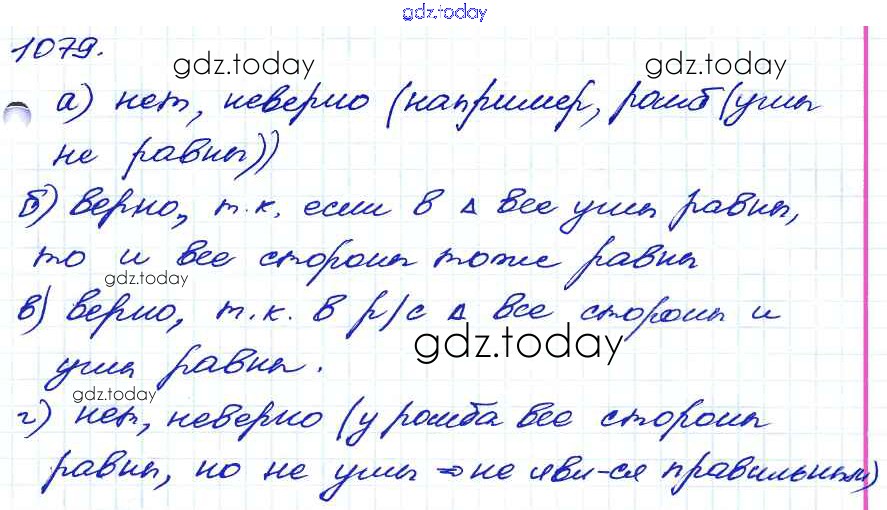 gdz.today
1079.
gdz.today gdz.today
а) нет, неверно (например, ромб (углы
не равны))
б) верно, т.к. если в Δ все углы равны,
то и все стороны тоже равны
gdz.today
в) верно, т.к. в р/с Δ все стороны и
gdz.today
углы равны.
gdz.today
г) нет, неверно (у ромба все стороны
равны, но не углы ⇒ не явл-ся правильным)